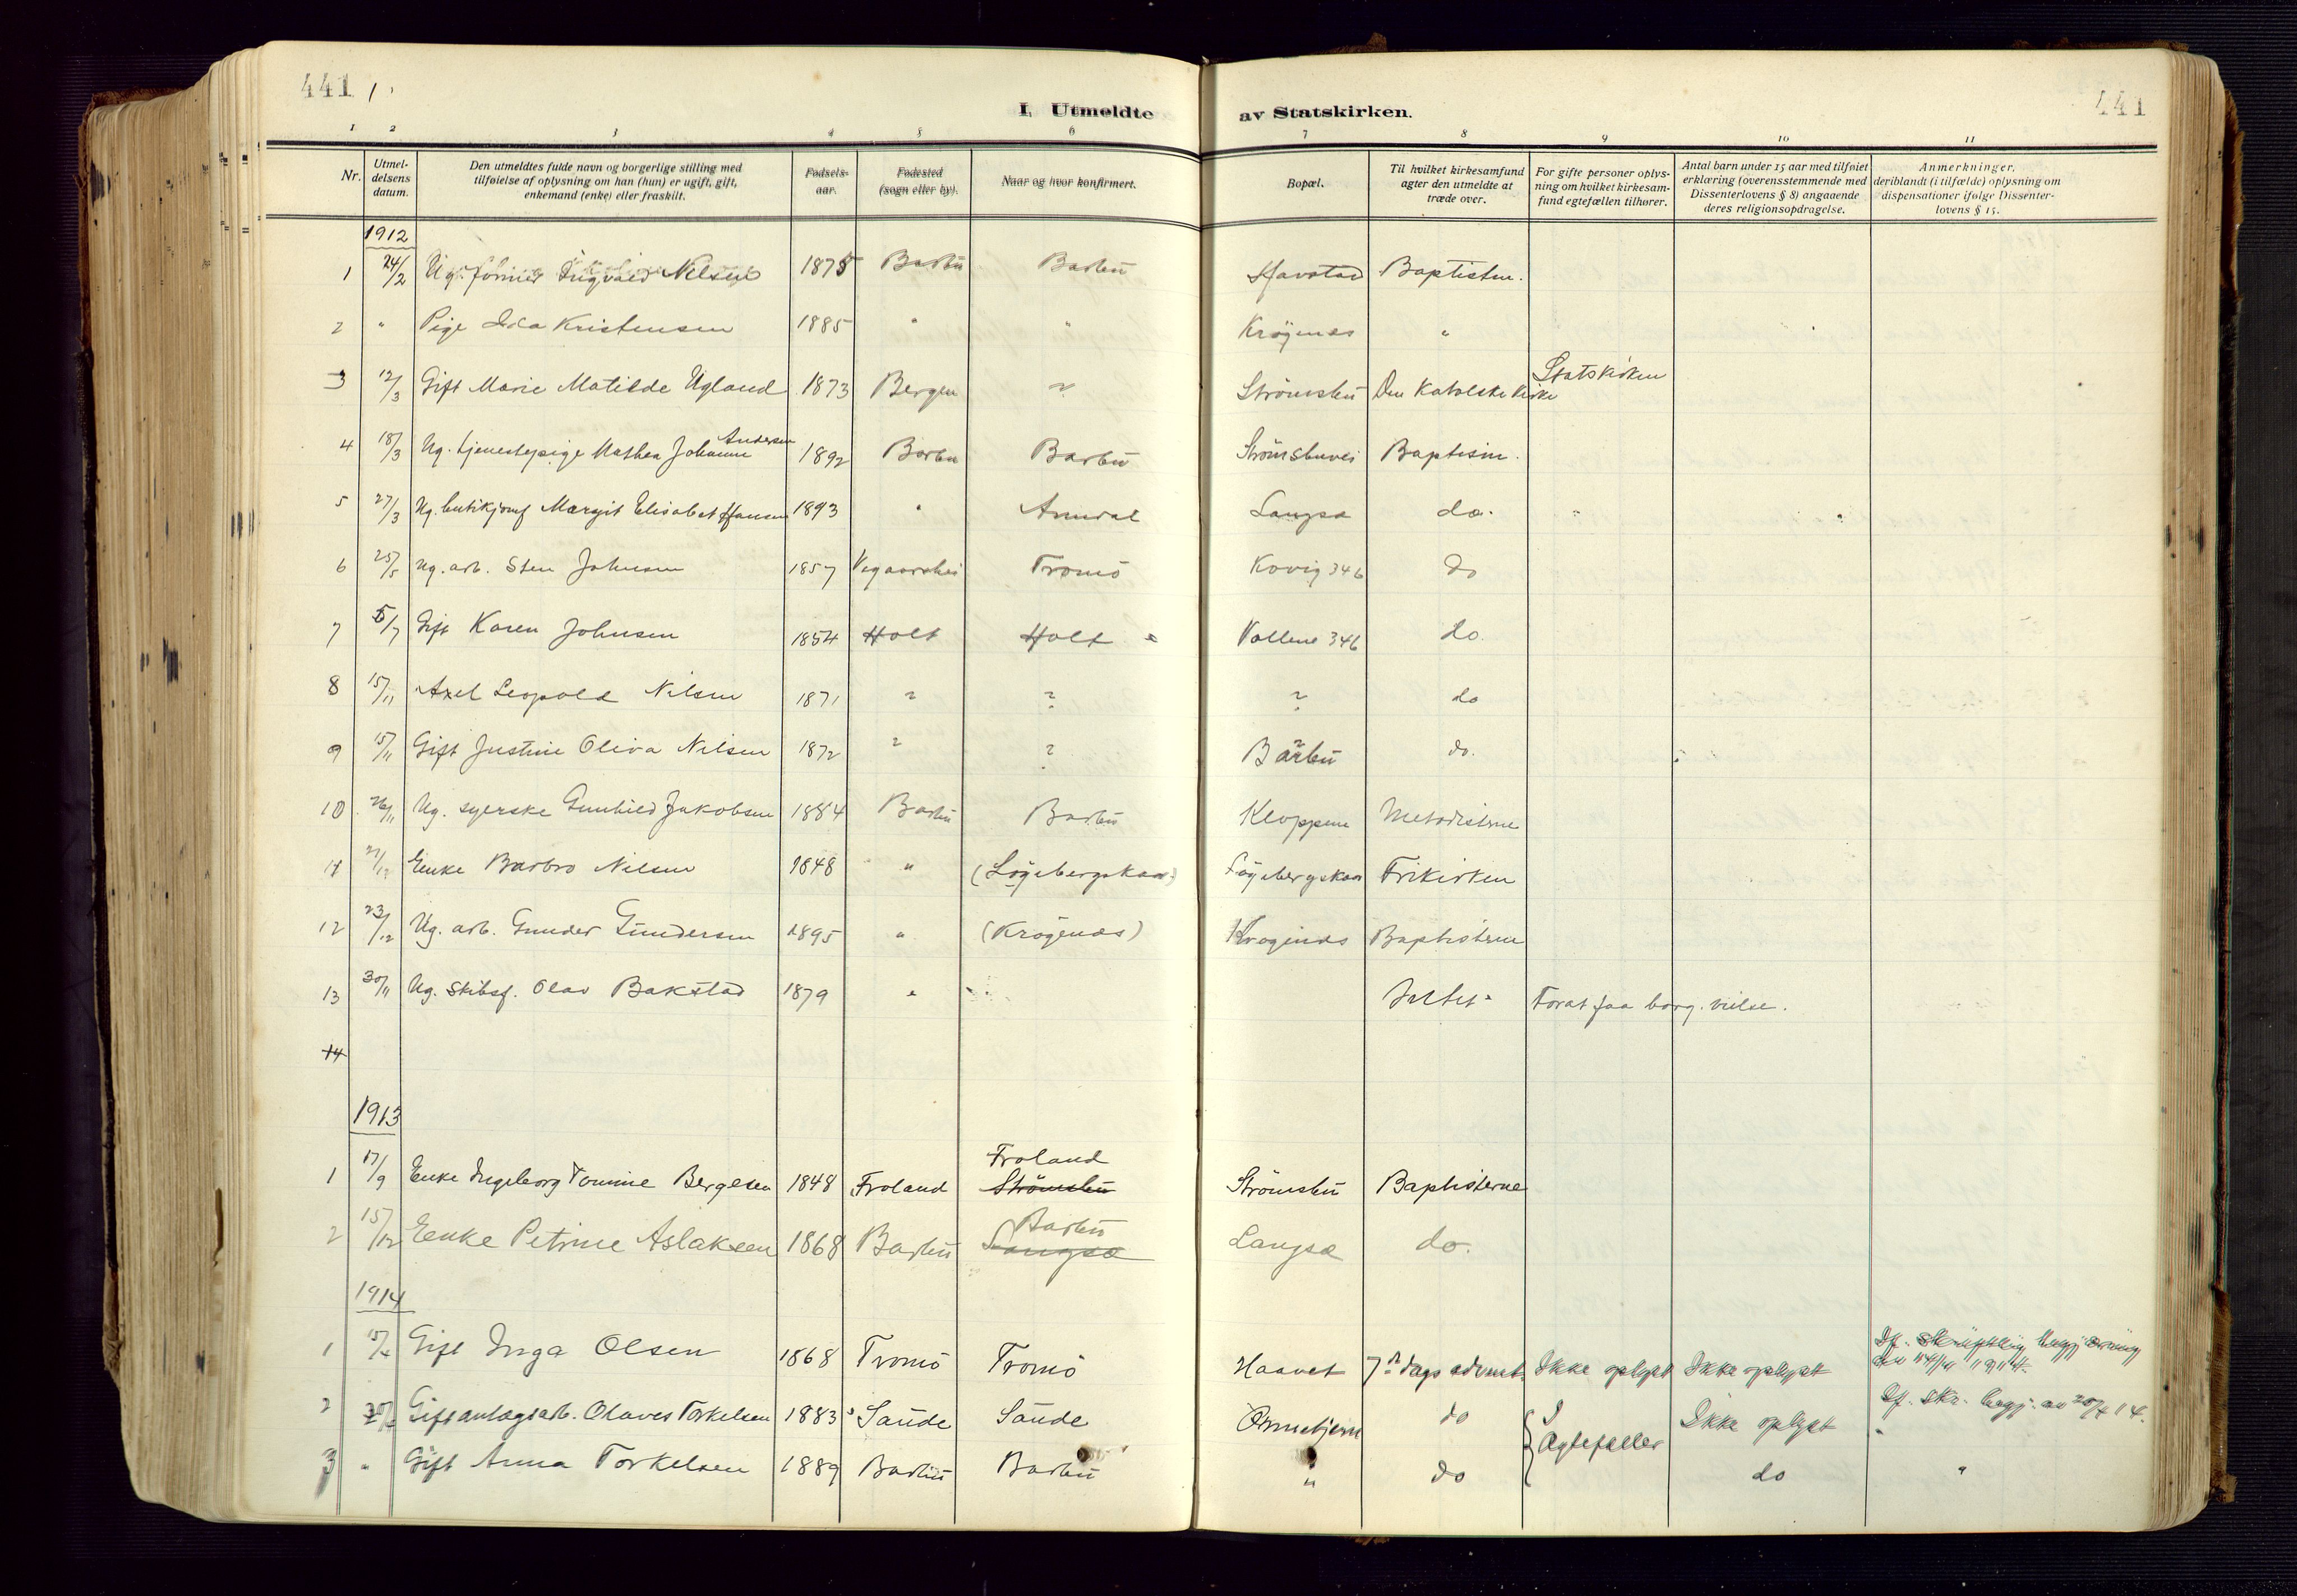 441
441
I. Utmeldte av Statskirken.
1 2 3 4 5 6 7 8 9 10 11
Nr.
Utmel-
delsens
datum.
Den utmeldtes fulde navn og borgerlige stilling med
tilføielse af oplysning om han (hun) er ugift, gift,
enkemand (enke) eller fraskilt.
Fødsels-
aar.
Fødested
(sogn eller by).
Naar og hvor konfirmert.
Bopæl.
Til hvilket kirkesamfund
agter den utmeldte at
træde over.
For gifte personer oplys-
ning om hvilket kirkesam-
fund egtefællen tilhører.
Antal barn under 15 aar med tilføiet
erklæring (overensstemmende med
Dissenterlovens § 8) angaaende
deres religionsopdragelse.
Anmerkninger,
deriblandt (i tilfælde) oplysning om
dispensationer ifølge Dissenter-
lovens § 15.
1912
1 24/2 Ug. Ingvald Nelsen 1875 Barbu Barbu Havstad Baptisten.
2 " Pige Ida Kristensen 1885 " " Krøgenes "
Statskirken
3 12/3 Gift Marie Matilde Ugland 1873 Bergen ? Strömsbu Den Katolske Kirke
Andersen
4 18/3 Ug. tjenestepige Mathea Johanne 1892 Barbu Barbu Strömsbuvei Baptism.
5 27/3 Ug. butikjomf Margit Elisabet Hansen 1893 " Arendal Langsæ do.
6 25/5 Ug. arb. Sten Johnsen 1857 Vegaarshei Tromö Kovig 346 do
7 5/7 Gift Karen Johnsen 1854 Holt Holt Vollene 346 do.
8 15/11 Axel Leopold Nilsen 1871 ? ? ? do
9 15/11 Gift Justine Oliva Nilsen 1872 ? ? Barbu do.
10 26/11 Ug. syerske Gunhild Jakobsen 1884 Barbu Barbu Kloppene Metodisterne
11 27/12 Enke Barbro Nilsen 1848 " (Lögebergskaar) Lögebergskaar Frikirken
12 23/12 Ug. arb. Gunder Gundersen 1895 " (Krögenæs) Krøgenæs Baptisterne
13 30/11 Ug. Skibsf. Olav Bakstad 1879 " Intet. For at faa borg. vielse.
14
1913
Froland
1 17/9 Enke Ingeborg Tomine Bergesen 1848 Froland Strömsbu Strömsbu Baptisterne
Barbu
2 15/12 Enke Petrine Aslaksen 1868 Barbu Langsæ Langsæ do.
1914
1 15/4 Gift Inga Olsen 1868 Tromö Tromö Haavet 7de dags advent. Ikke oplyst Ikke oplyst If. skriftlig begjæring
den 14/4 1914.
2 20/4 Gift anlagsarb. Olaves Torkelsen 1883 Saude Saude do Ægtefæller Ikke oplyst If. skr. begj. av 20/4 14.
3 " Gift Anna Torkelsen 1889 Barbu Barbu " do do "